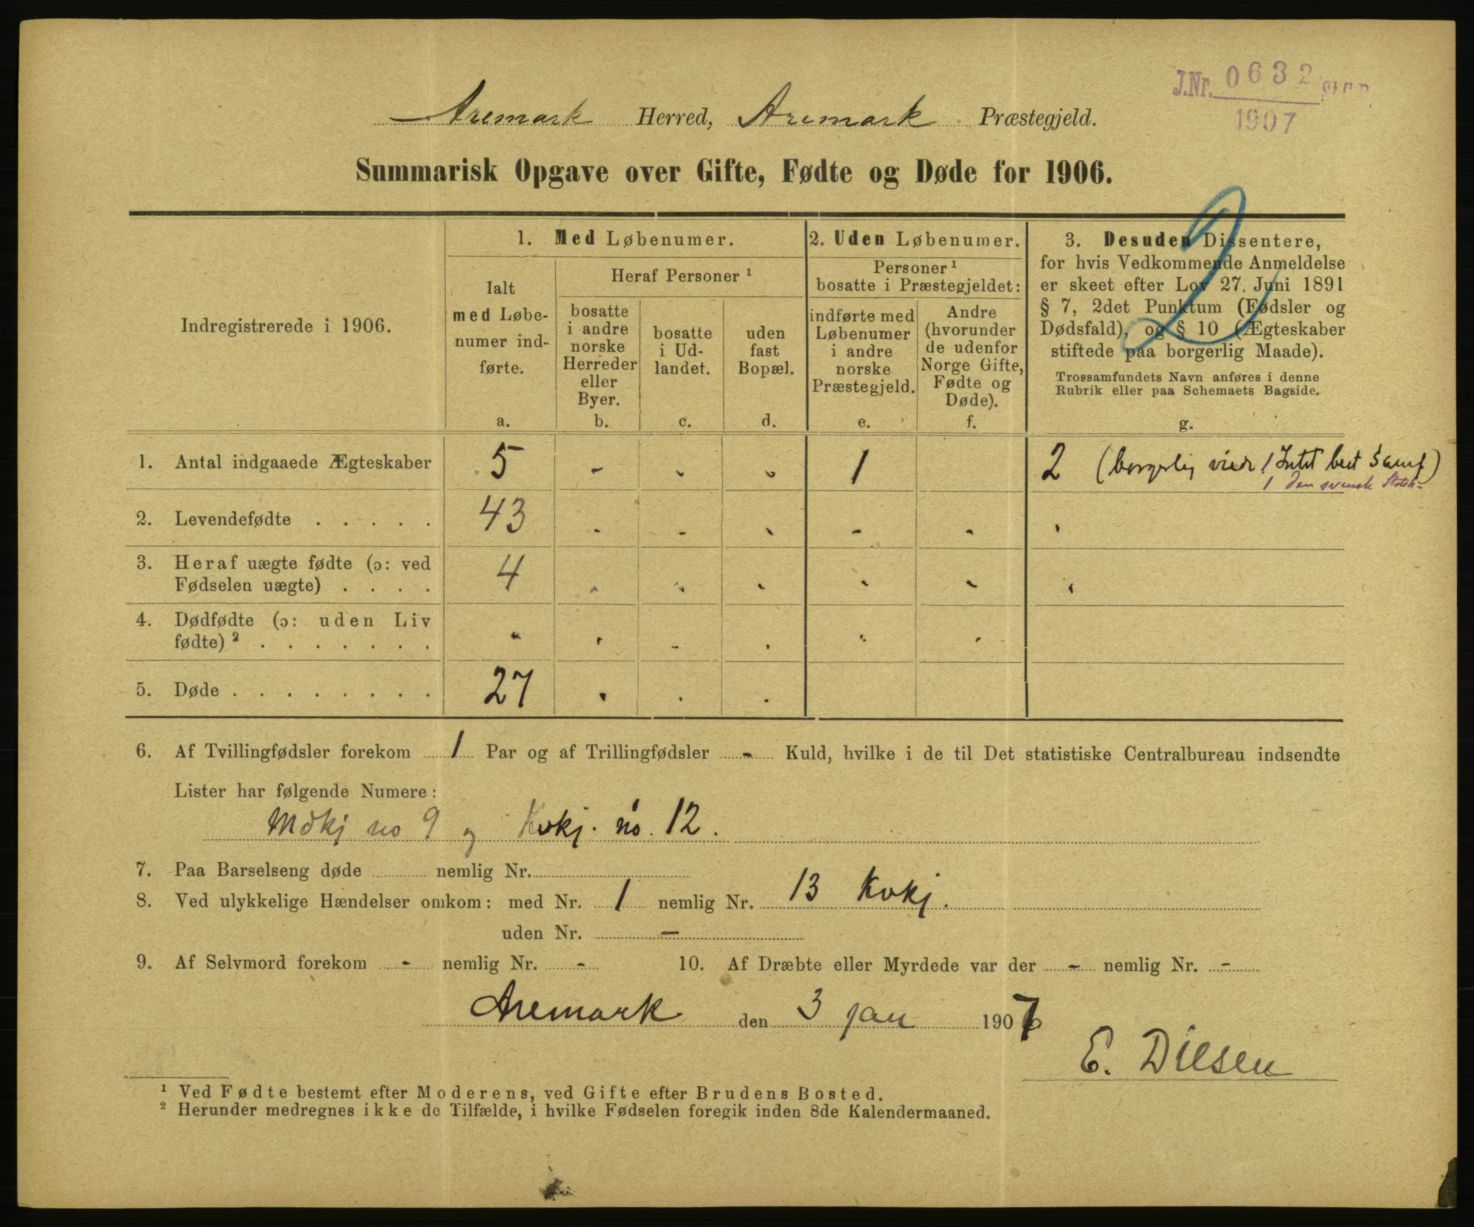 J.Nr. 0632
1907
Aremark Herred, Aremark Præstegjeld.
Summarisk Opgave over Gifte, Fødte og Døde for 1906.
2
Indregistrerede i 1906.
1. Med Løbenumer.
Ialt
med Løbe-
numer ind-
førte.
a.
Heraf Personer ¹
bosatte
i andre
norske
Herreder
eller
Byer.
b.
bosatte
i Ud-
landet.
c.
uden
fast
Bopæl.
d.
2. Uden Løbenumer.
Personer ¹
bosatte i Præstegjeldet:
indførte med
Løbenumer
i andre
norske
Præstegjeld.
e.
Andre
(hvorunder
de udenfor
Norge Gifte,
Fødte og
Døde).
f.
3. Desuden Dissentere,
for hvis Vedkommende Anmeldelse
er skeet efter Lov 27. Juni 1891
§ 7, 2det Punktum (Fødsler og
Dødsfald), og § 10 (Ægteskaber
stiftede paa borgerlig Maade).
Trossamfundets Navn anføres i denne
Rubrik eller paa Schemaets Bagside.
g.
1. Antal indgaaede Ægteskaber 5 - - - 1 2 (borgerlig viede 1 Intet best Samf)
1 den svenske Statsk-
2. Levendefødte . . . . . 43 - - - - - -
3. Heraf uægte fødte (ɔ: ved
Fødselen uægte) . . . . 4 - - - - - -
4. Dødfødte (ɔ: uden Liv
fødte) ² . . . . . . . - - - - - -
5. Døde . . . . . . . . 27 - - -
6. Af Tvillingfødsler forekom 1 Par og af Trillingfødsler - Kuld, hvilke i de til Det statistiske Centralbureau indsendte
Lister har følgende Numere:
Mdkj no 9 og Kvkj. no. 12.
7. Paa Barselseng døde nemlig Nr.
8. Ved ulykkelige Hændelser omkom: med Nr. 1 nemlig Nr. 13 Kvkj.
uden Nr. -
9. Af Selvmord forekom - nemlig Nr. - 10. Af Dræbte eller Myrdede var der - nemlig Nr. -
Aremark den 3 jan 1907
E. Diesen
¹ Ved Fødte bestemt efter Moderens, ved Gifte efter Brudens Bosted.
² Herunder medregnes ikke de Tilfælde, i hvilke Fødselen foregik inden 8de Kalendermaaned.